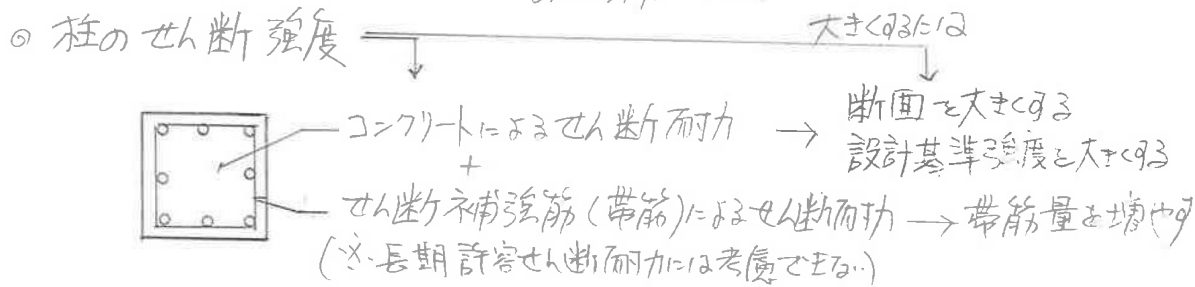 ◎ 柱のせん断強度
大きくするには
コンクリートによるせん断耐力 → 断面を大きくする
設計基準強度を大きくする
+
せん断補強筋(帯筋)によるせん断耐力 → 帯筋量を増やす
(※.長期許容せん断耐力には考慮できない)